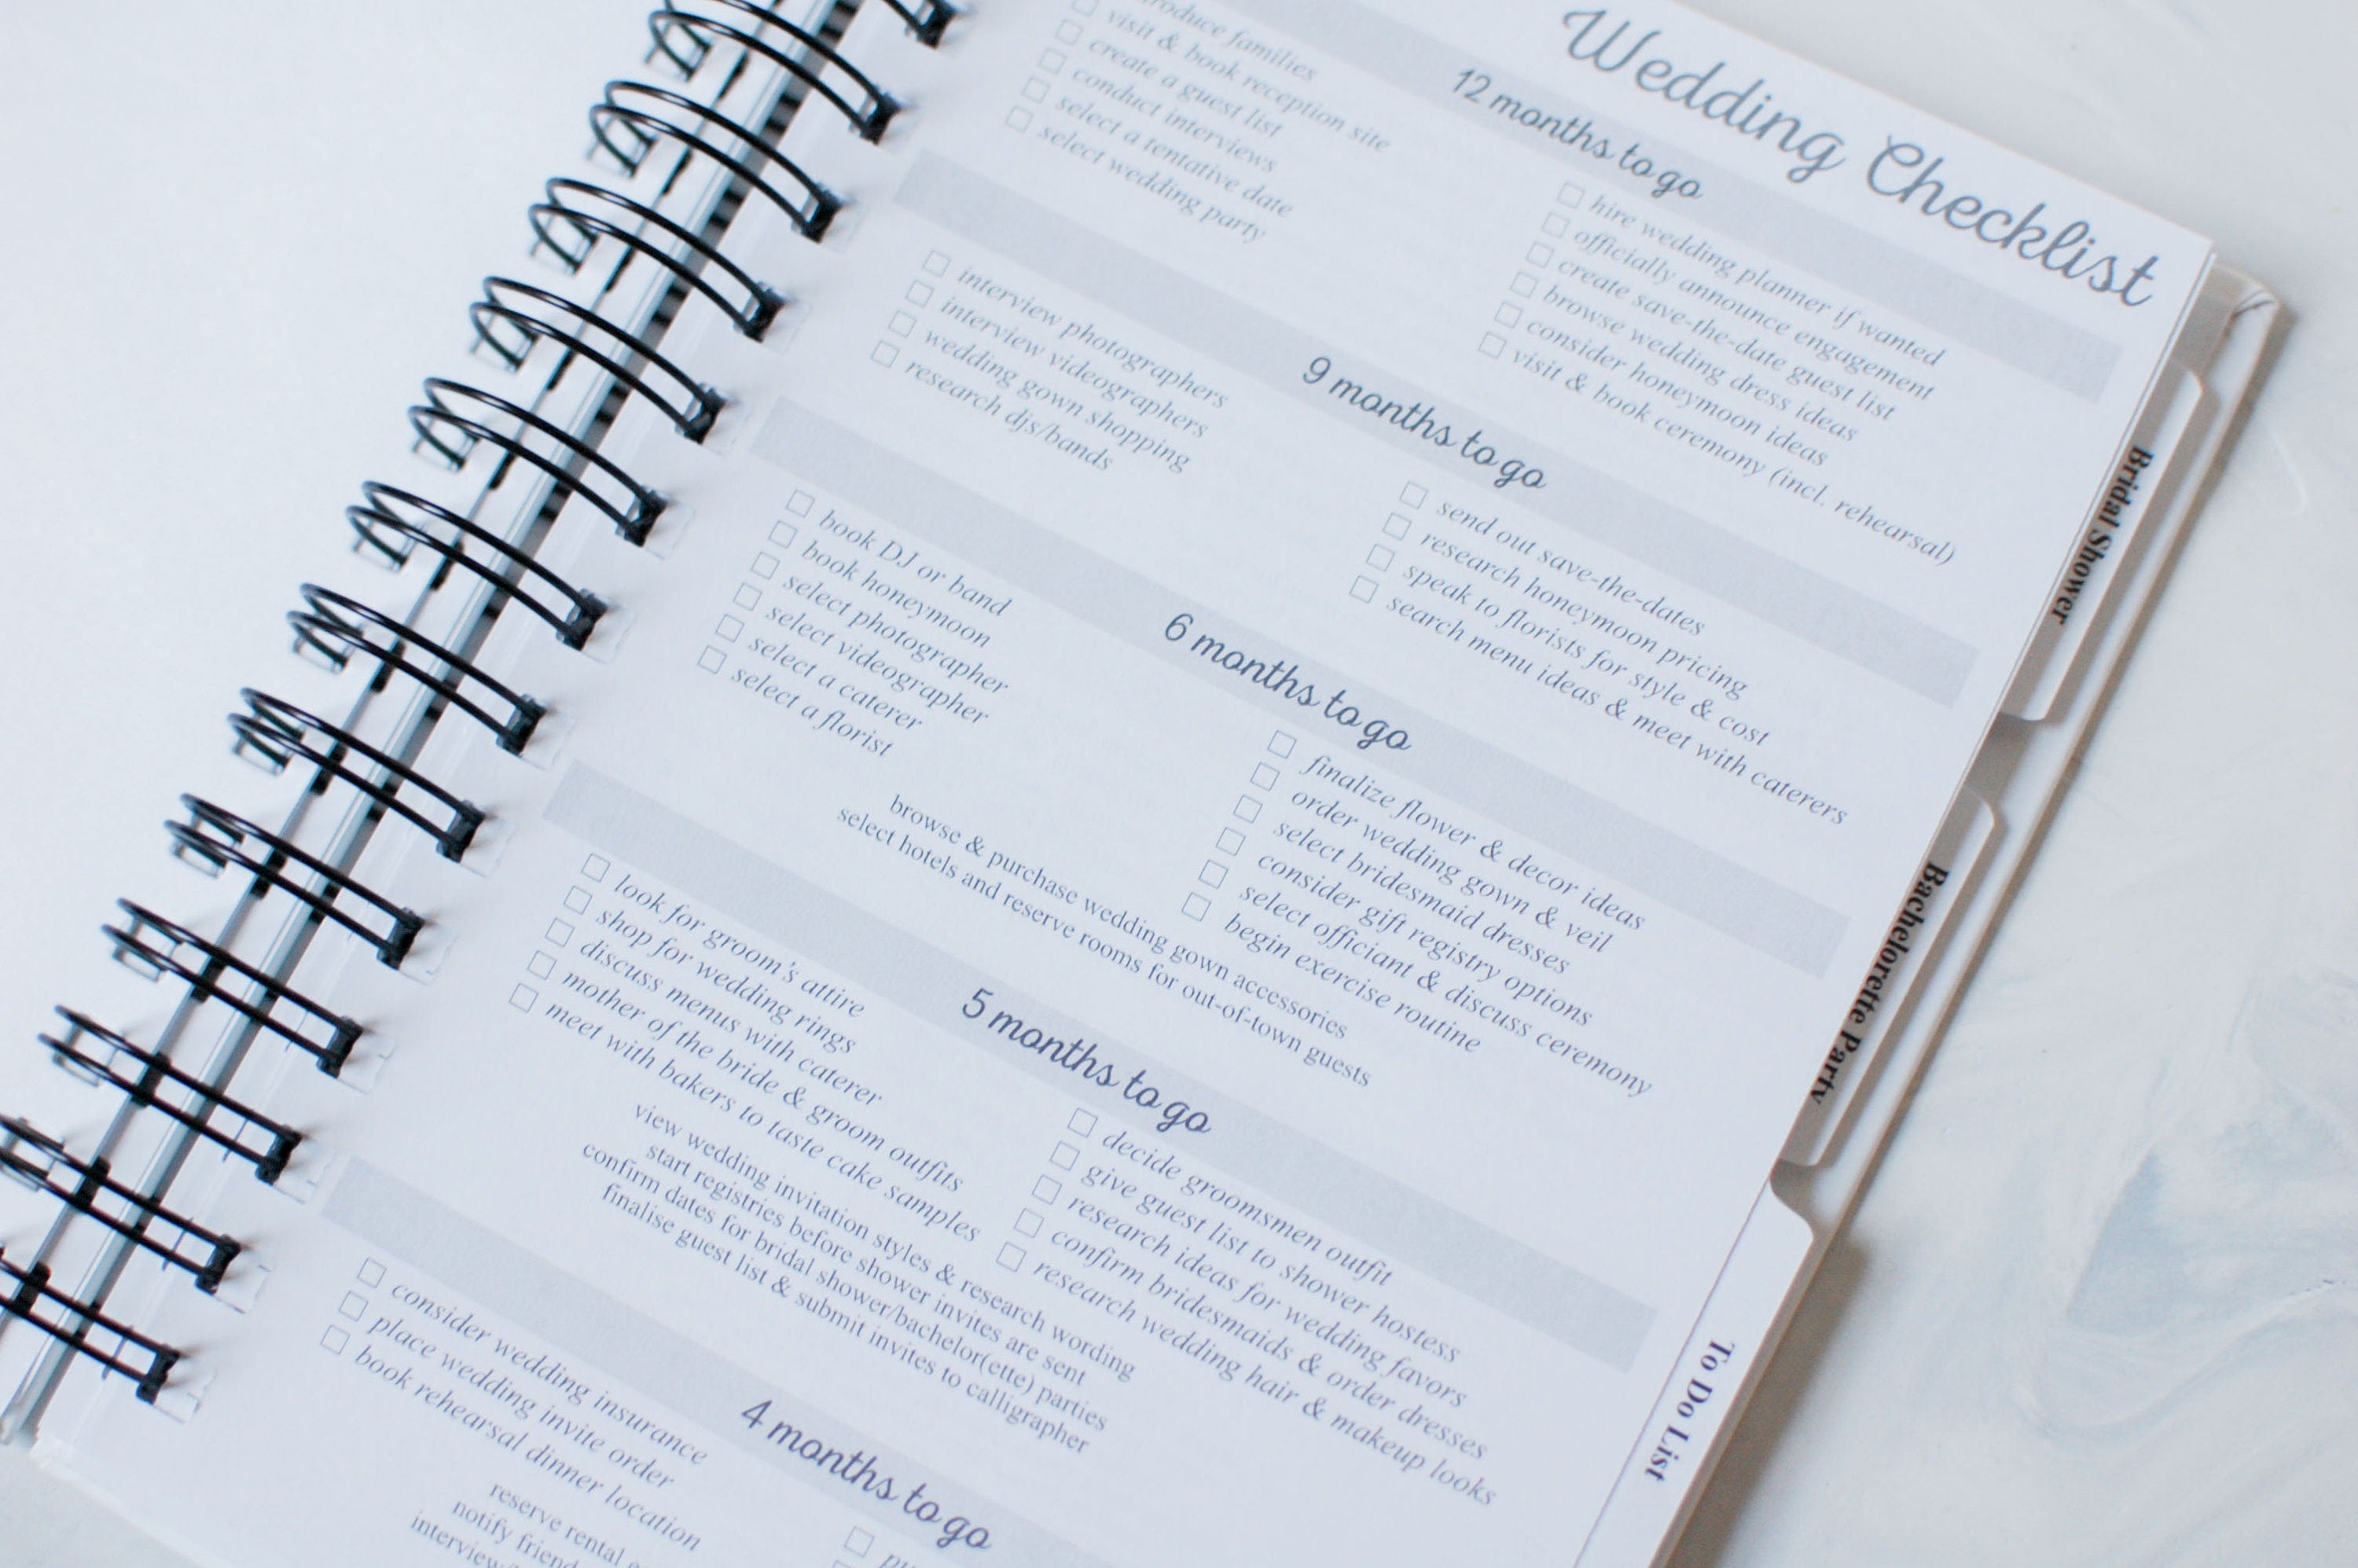 Wedding Checklist
12 months to go
families
visit & book reception site
create a guest list
conduct interviews
select a tentative date
select wedding party
hire wedding planner if wanted
officially announce engagement
create save-the-date guest list
browse wedding dress ideas
consider honeymoon ideas
visit & book ceremony (incl. rehearsal)
9 months to go
interview photographers
interview videographers
wedding gown shopping
research djs/bands
send out save-the-dates
research honeymoon pricing
speak to florists for style & cost
search menu ideas & meet with caterers
6 months to go
book DJ or band
book honeymoon
select photographer
select videographer
select a caterer
select a florist
finalize flower & decor ideas
order wedding gown & veil
select bridesmaid dresses
consider gift registry options
select officiant & discuss ceremony
begin exercise routine
browse & purchase wedding gown accessories
select hotels and reserve rooms for out-of-town guests
5 months to go
look for groom's attire
shop for wedding rings
discuss menus with caterer
mother of the bride & groom outfits
meet with bakers to taste cake samples
decide groomsmen outfit
give guest list to shower hostess
research ideas for wedding favors
confirm bridesmaids & order dresses
research wedding hair & makeup looks
view wedding invitation styles & research wording
start registries before shower invites are sent
confirm dates for bridal shower/bachelor(ette) parties
finalise guest list & submit invites to calligrapher
4 months to go
consider wedding insurance
place wedding invite order
book rehearsal dinner location
reserve rental
notify
Bridal Shower
Bachelorette Party
To Do List